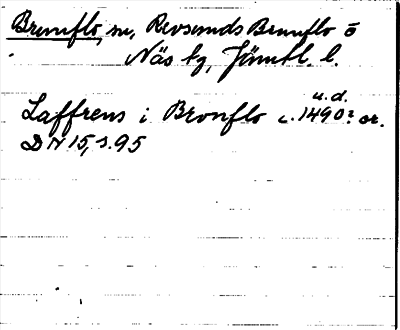 Brunflo, sn, Revsunds Brunflo o
Näs tg, Jämtl. l.
u. d.
Laffrens i Bronflo c. 1490? or.
DN 15, s. 95